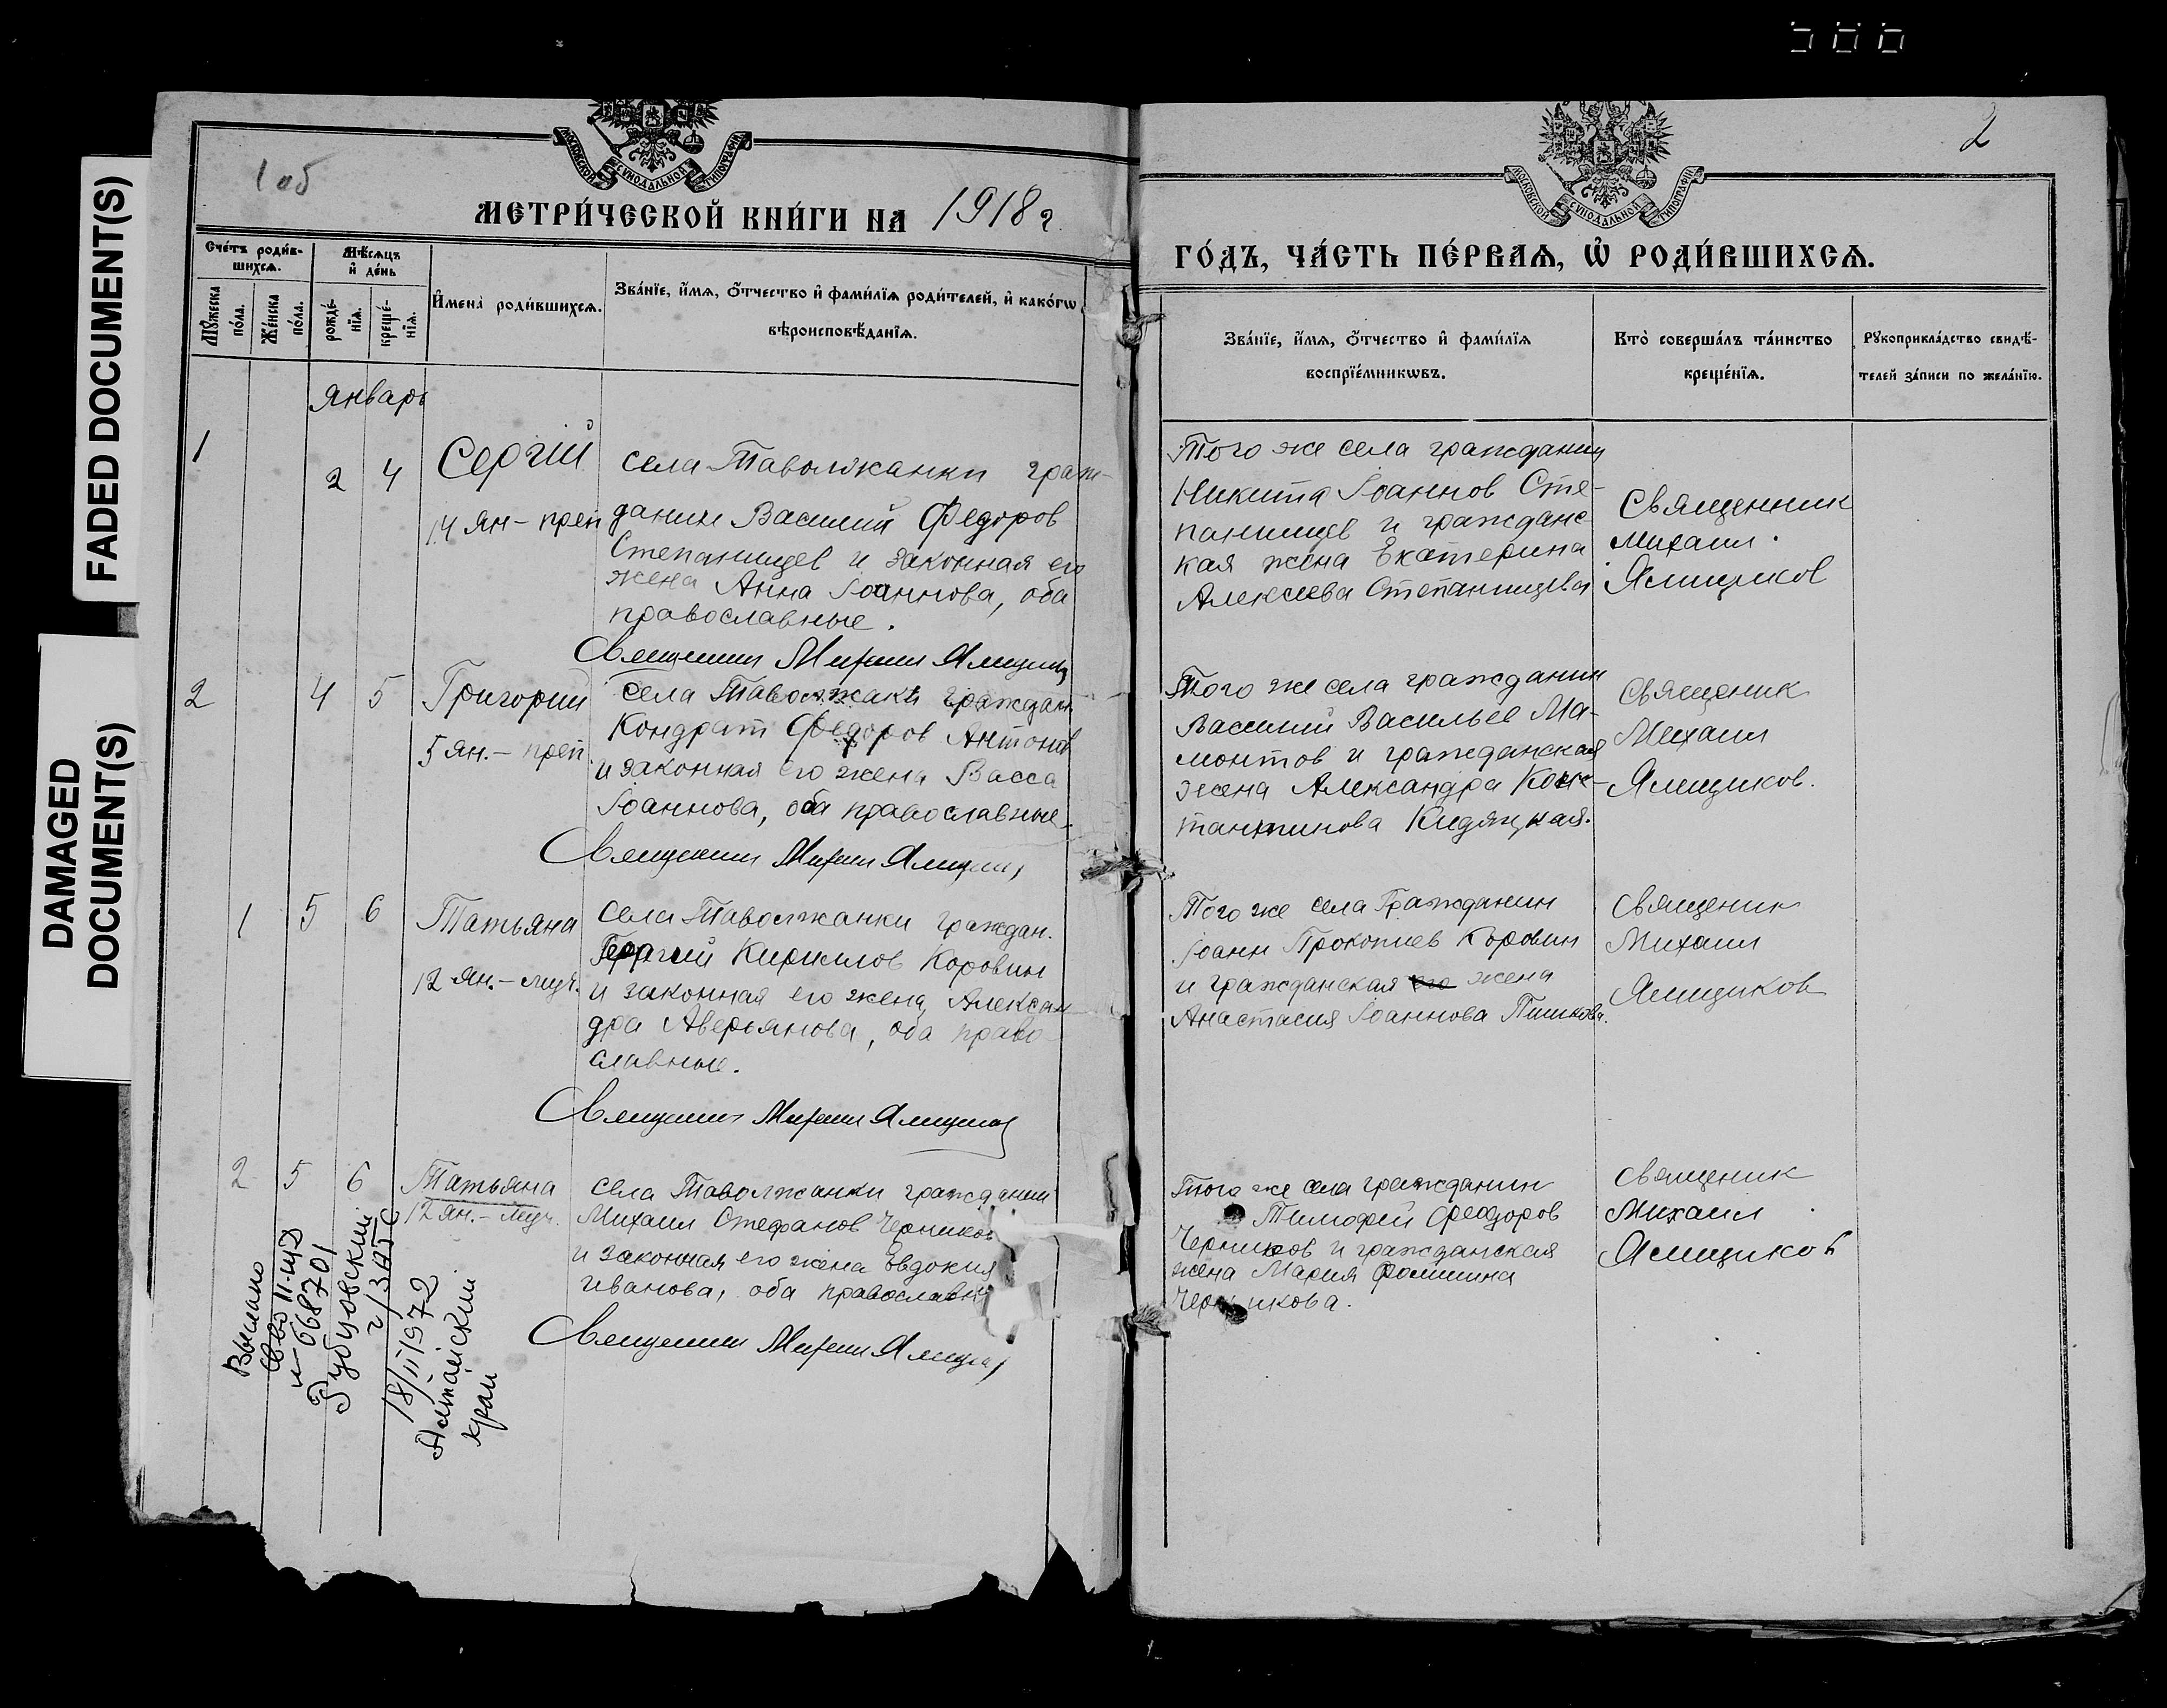 FADED DOCUMENT(S)
DAMAGED
DOCUMENT(S)
1 об
МОСКОВСКОЙ СѴНОДАЛЬНОЙ ТИПОГРАФІИ
МЕТРИ́ЧЕСКОЙ КНИ́ГИ НА 1918 г.
Сче́тъ роди́в-
шихсѧ.
Мѣ́сѧцъ
и҆ де́нь
Мꙋ́жеска
по́ла.
Же́нска
по́ла.
рожде́-
нїѧ.
креще́-
нїѧ.
И҆мена̀ роди́вшихсѧ.
Зва́нїе, и҆́мѧ, ѻ҆́тчество и҆ фами́лїѧ роди́телей, и҆ како́гѡ
вѣроисповѣ́данїѧ.
Январь
1
2 4
Сергій
14 Ян - преп
села Таволжанки граж-
данин Василий Федоров
Степанищев и законная его
жена Анна Іоаннова, оба
православные.
Священник Михаил Ямщиков
2
4 5
Григорий
5 ян. - преп.
села Таволжаки граждан
Кондрат Федоров Антонов
и законная его жена Васса
Іоаннова, оба православные
Священник Михаил Ямщиков
1 5 6
Татьяна
12 Ян. - муч.
села Таволжанки граждан.
Георгий Кирилов Коровин
и законная его жена Алексан
дра Аверьянова, оба право
славные.
Священник Михаил Ямщиков
2 5 6
Татьяна
12 ян. - муч.
села Таволжанки гражданин
Михаил Стефанов Черников
и законная его жена Евдокия
Иванова, оба православн
Священник Михаил Ямщиков
Выслано
св-во II-ЩД
№ 668701
Рубцовский
г/ЗАГС
18/II 1972
Алтайский
край
2
МОСКОВСКОЙ СѴНОДАЛЬНОЙ ТИПОГРАФІИ
ГО́ДЪ, ЧА́СТЬ ПЕ́РВАѦ, Ѡ҆ РОДИ́ВШИХСѦ.
Зва́нїе, и҆́мѧ, ѻ҆́тчество и҆ фами́лїѧ
воспрїе́мникѡвъ.
Кто̀ соверша́лъ та́инство
креще́нїѧ.
Рꙋкоприкла́дство свидѣ́-
телей за́писи по жела́нїю.
Того же села гражданин
Никита Іоаннов Сте-
панищев и гражданс-
кая жена Екатерина
Алексеева Степанищева
Священник
Михаил
Ямщиков
Того же села гражданин
Василий Васильев Ма-
монтов и гражданская
жена Александра Конс-
тантинова Кидяцкая.
Священик
Михаил
Ямщиков.
Того же села Гражданин
Іоанн Прокопиев Коровин
и гражданская его жена
Анастасия Іоаннова Пашкова.
Священик
Михаил
Ямщиков
Того же села гражданин
Тимофей Феодоров
Черников и гражданская
жена Мария Фомишна
Черникова.
Священик
Михаил
Ямщиков